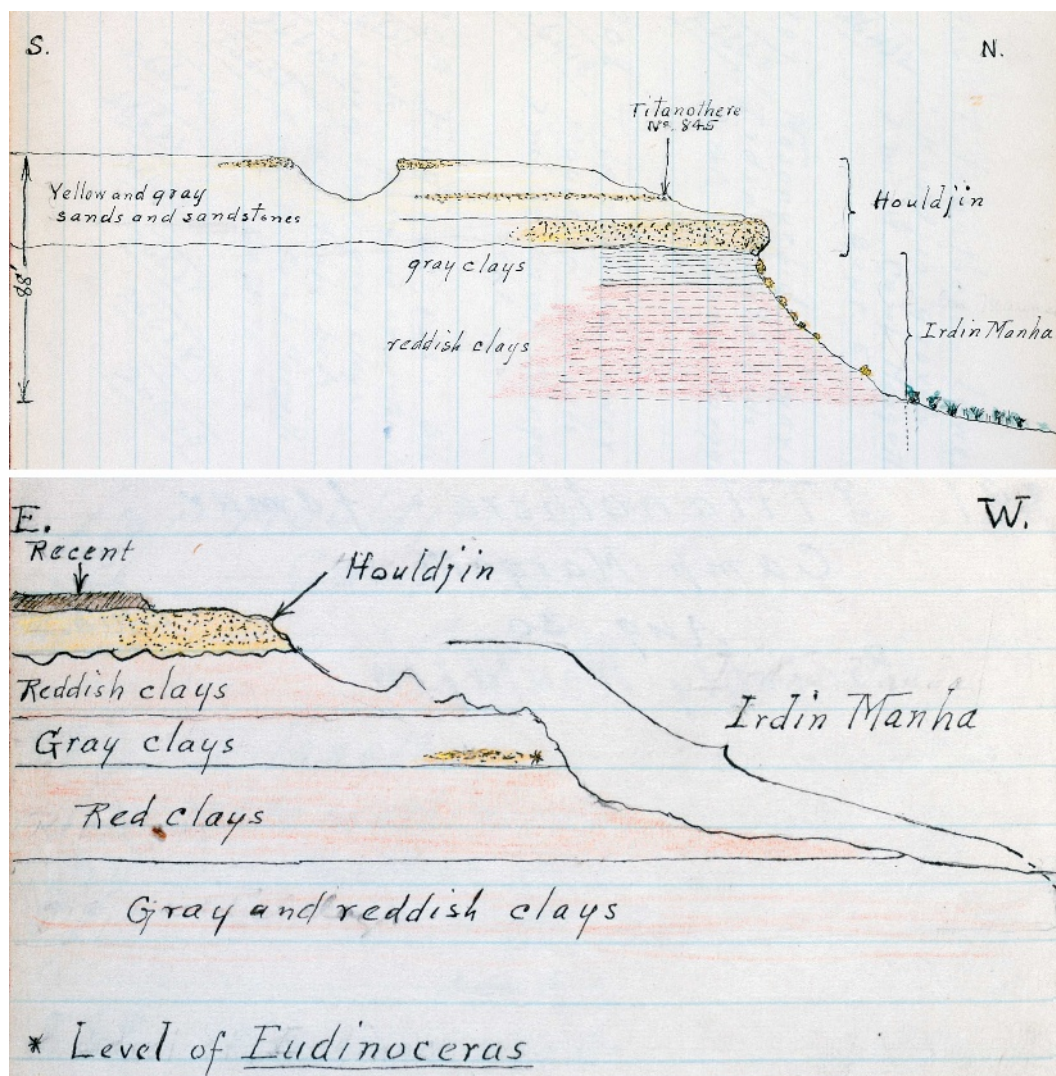 S.
N.
Titanothere
No. 845
Yellow and gray
sands and sandstones
Houldjin
88'
gray clays
reddish clays
Irdin Manha
E.
W.
Recent
Houldjin
Reddish clays
Irdin Manha
Gray clays
Red clays
Gray and reddish clays
* Level of Eudinoceras